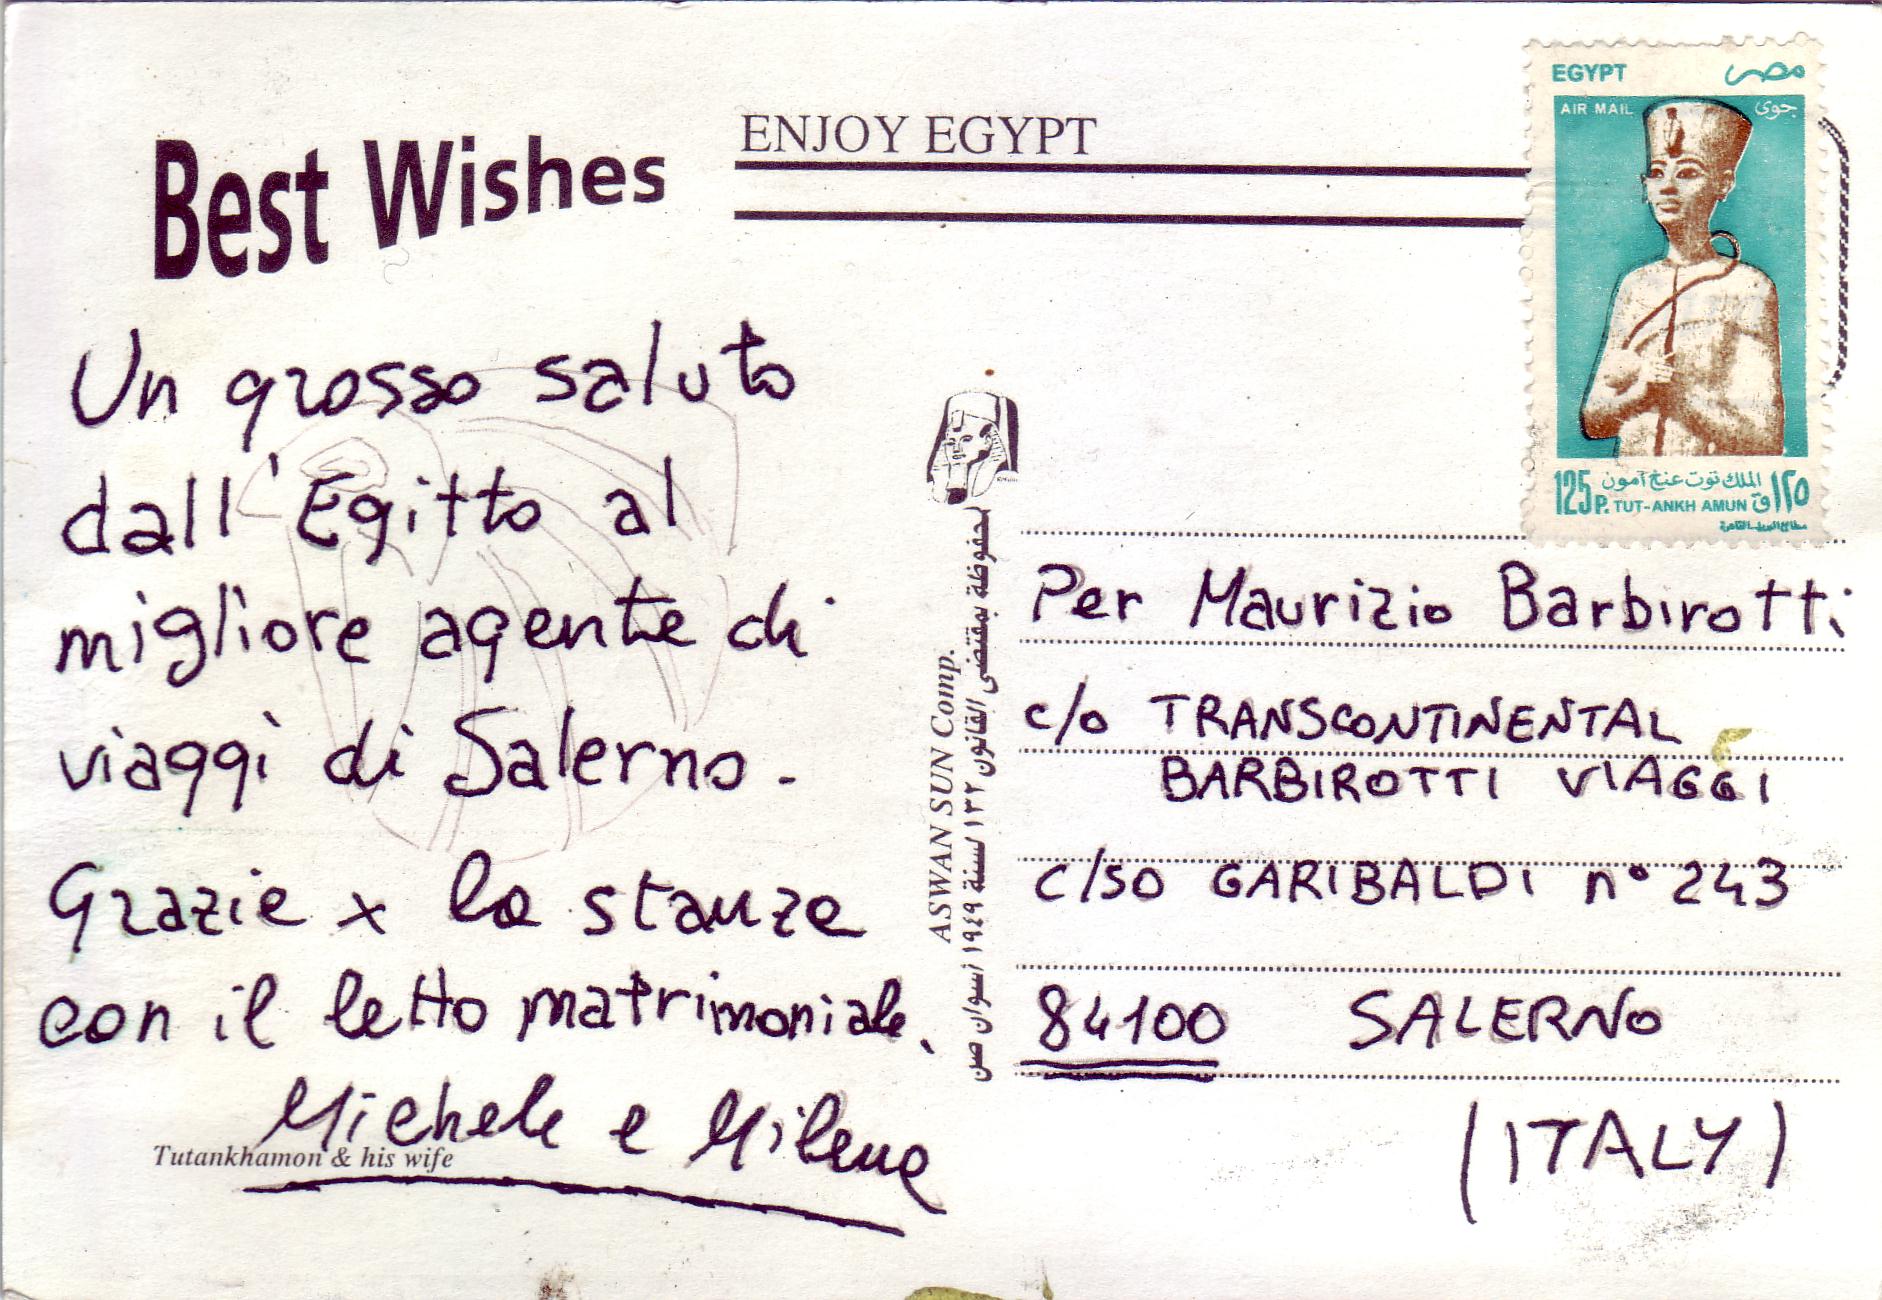 Best Wishes
ENJOY EGYPT
EGYPT مصر
AIR MAIL جوى
الملك توت عنخ آمون
125P. TUT-ANKH AMUN ١٢٥ق
Un grosso saluto
dall'Egitto al
migliore agente di
viaggi di Salerno.
Grazie x la stanza
con il letto matrimoniale.
Michele e Milena
Tutankhamon & his wife
ASWAN SUN Comp.
محفوظة بمقتضى القانون ١٣٢ لسنة ١٩٤٩ اسوان صن
Per Maurizio Barbirotti
c/o TRANSCONTINENTAL
BARBIROTTI VIAGGI
c/so GARIBALDI n° 243
84100 SALERNO
(ITALY)